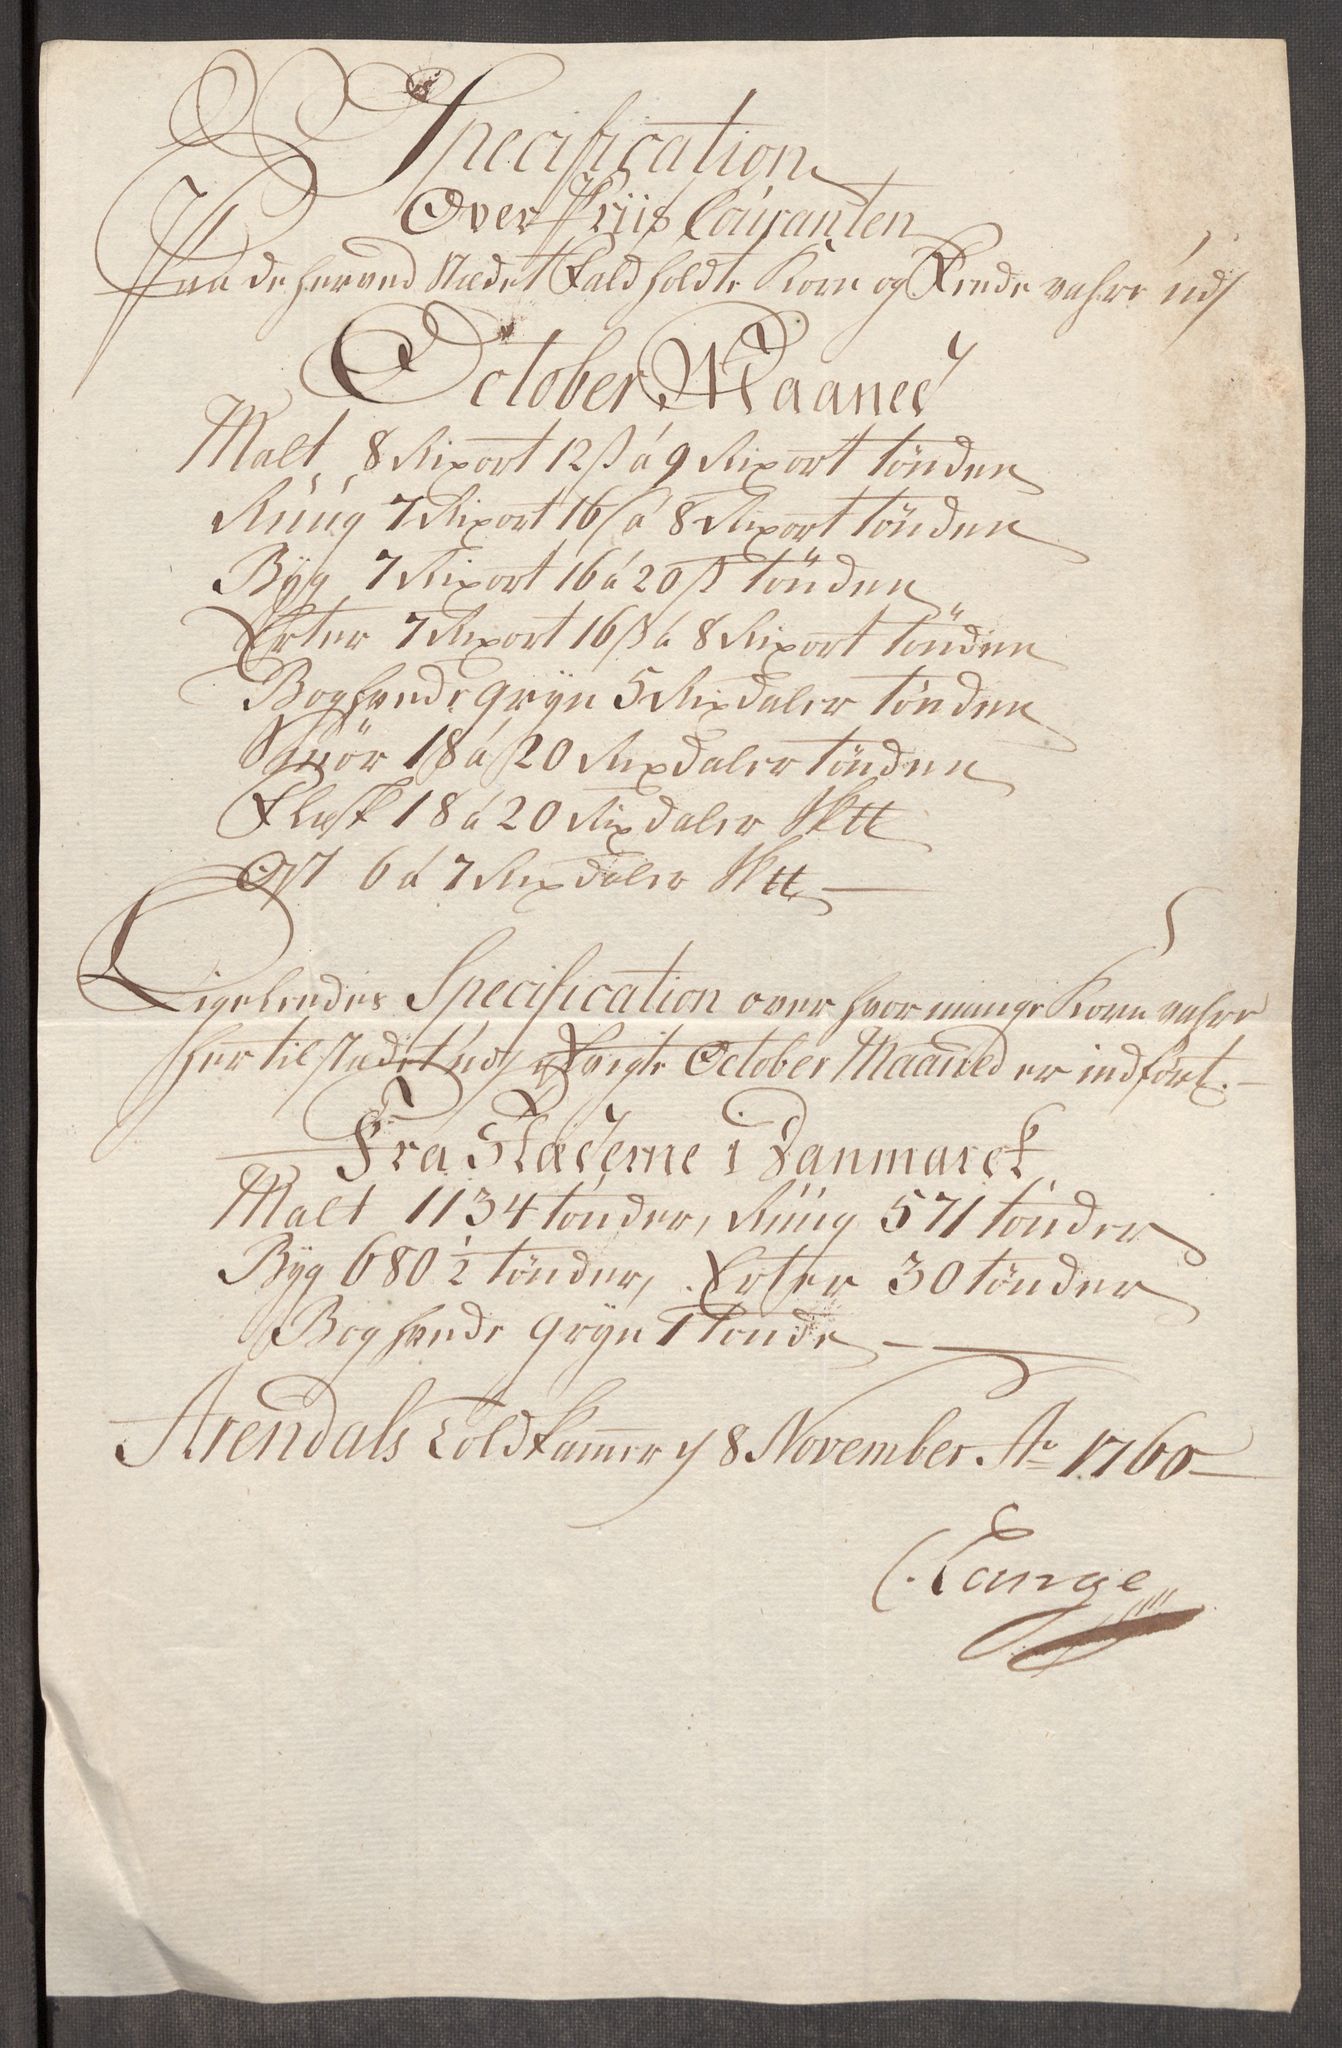 Specification
Over Priis Couranten
Paa de her ved Stædet Fald holdte Korn og Fæde vahre udj
October Maaned
Malt 8 Rixort 12 ß á 9 Rixort tönden
Rúúg 7 Rixort 16 ß á 8 Rixort tönden
Byg 7 Rixort 16 á 20 ß tönden
Erter 7 Rixort 16 ß á 8 Rixort tönden
Boghvede gryn 5 Rixdaler tönden
Smör 18 á 20 Rixdaler tönden
Flesk 18 á 20 Rixdaler Sk℔
Ost 6 á 7 Rixdaler Sk℔
Ligeleedes Specification over hvor mange Korn vahre
her til stædet udj October Maaned er indfört.
Fra Stæderne i Danmarck
Malt 1134 tönder, Rúúg 571 tönder
Byg 680 1/2 tönder, Erter 30 tönder
Boghvede gryn 1 tönde
Arendals Toldkammer d 8 November Ao 1760
C. Lange